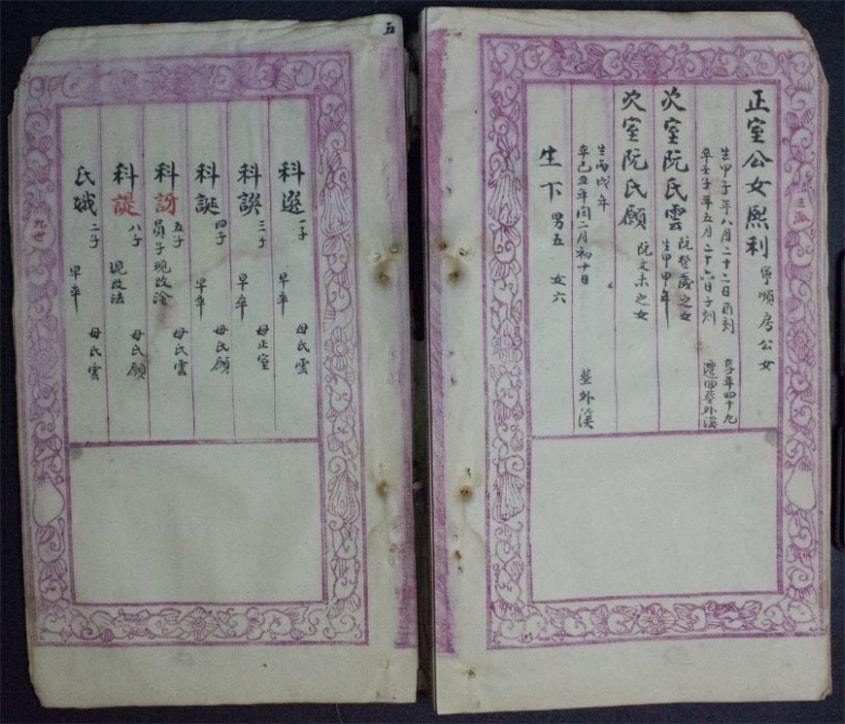 三派
正室公女熙利 寧順房公女
生甲子年八月二十二日酉刻 享年四十九
卒壬子年五月二十六日子刻
次室阮氏雲 之女
生甲申年
次室阮氏願 阮文未之女
生丙戌年
卒己丑年閏二月初十日 塟外溪
生下 男五 女六
五
科選 早卒 母氏雲
科誤 三子 早卒 母正室
科誕 四子 早卒 母氏願
科訪 五子 員子現改淦 母氏雲
科諟 八子 現改法 母氏願
氏職 二子 早卒 母氏雲
九世